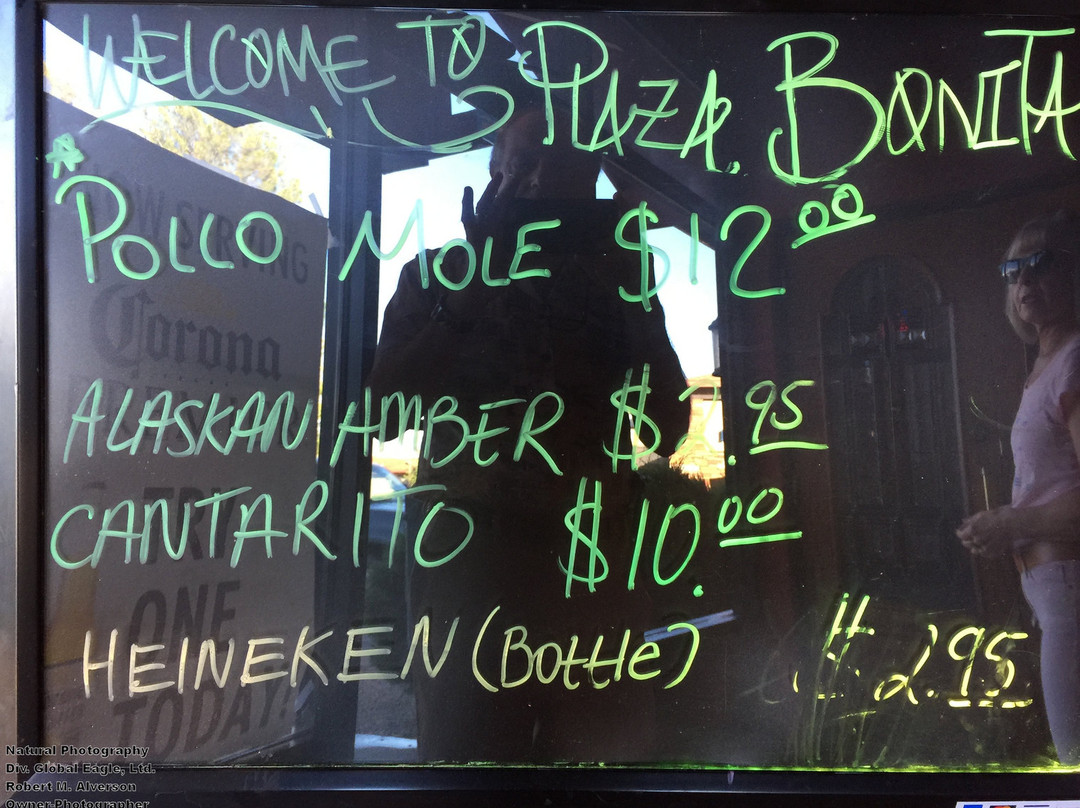 WELCOME TO PLAZA BONITA
*POLLO MOLE $12.00
ALASKAN AMBER $ .95
CANTARITO $10.00
HEINEKEN (Bottle) $2.95
NOW SERVING
Corona
TRY
ONE
TODAY!
Natural Photography
Div. Global Eagle, Ltd.
Robert M. Alverson
Owner-Photographer